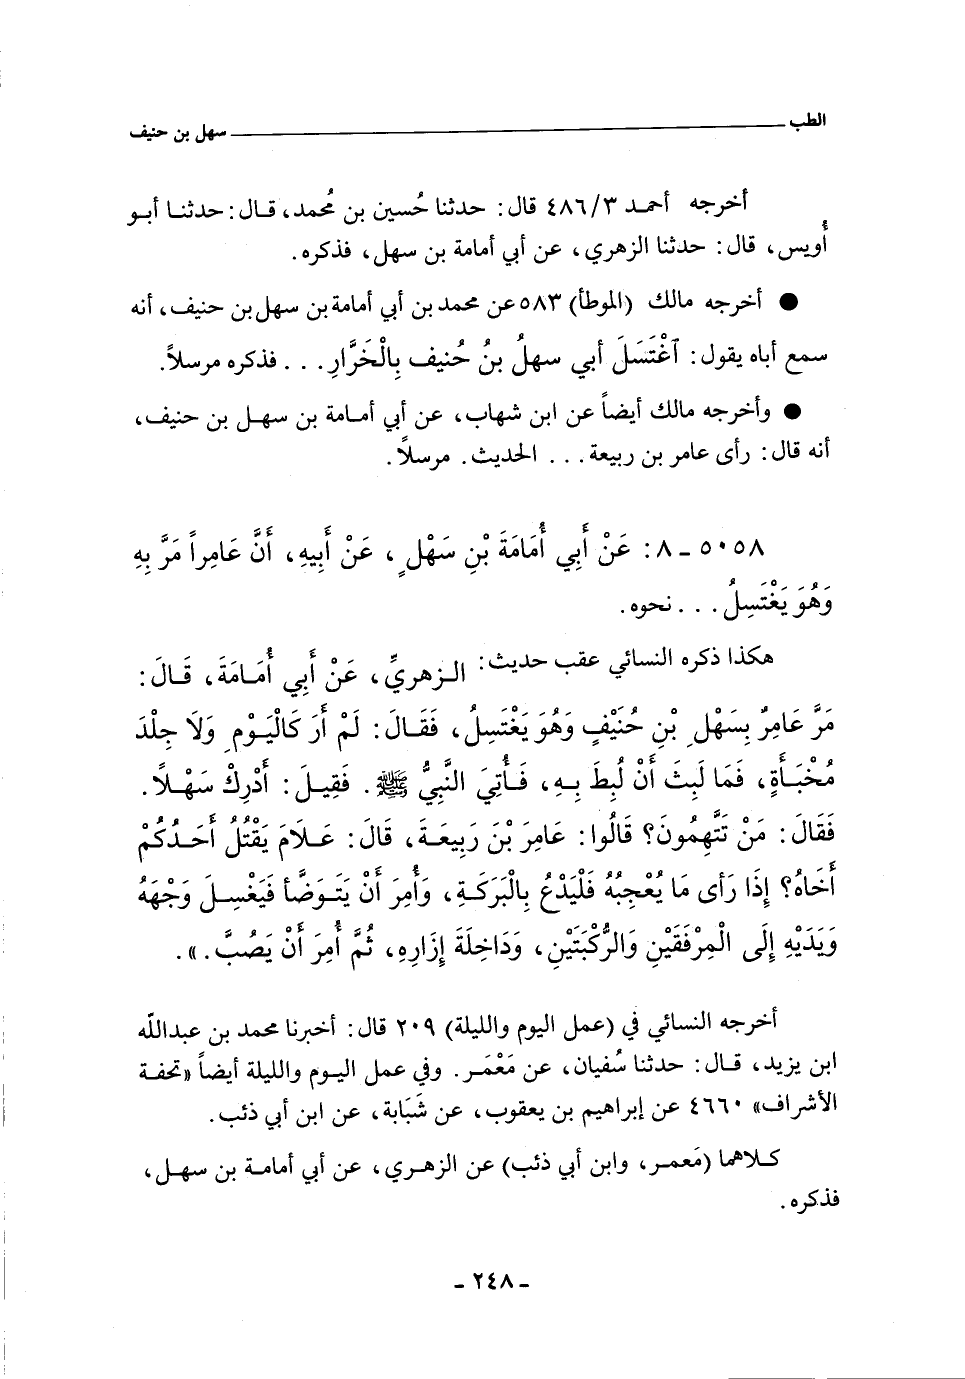 الطب ــــــــــ سهل بن حنيف
أخرجه أحمد ٤٨٦/٣ قال: حدثنا حُسين بن مُحمد، قال: حدثنا أبو
أُويس، قال: حدثنا الزهري، عن أبي أمامة بن سهل، فذكره.
● أخرجه مالك (الموطأ) ٥٨٣ عن محمد بن أبي أمامة بن سهل بن حنيف، أنه
سمع أباه يقول: ٱغْتَسَلَ أبي سهلُ بنُ حُنيف بِالْخَرَّارِ. . . فذكره مرسلاً.
● وأخرجه مالك أيضاً عن ابن شهاب، عن أبي أمامة بن سهل بن حنيف،
أنه قال: رأى عامر بن ربيعة. . . الحديث. مرسلاً.
٥٠٥٨ ـ ٨: عَنْ أَبِي أُمَامَةَ بْنِ سَهْلٍ، عَنْ أَبِيهِ، أَنَّ عَامِراً مَرَّ بِهِ
وَهُوَ يَغْتَسِلُ. . . نحوه.
هكذا ذكره النسائي عقب حديث: الزهريِّ، عَنْ أَبِي أُمَامَةَ، قَالَ:
مَرَّ عَامِرٌ بِسَهْلِ بْنِ حُنَيْفٍ وَهُوَ يَغْتَسِلُ، فَقَالَ: لَمْ أَرَ كَالْيَوْمِ وَلَا جِلْدَ
مُخْبَأَةٍ، فَمَا لَبِثَ أَنْ لُبِطَ بِهِ، فَأُتِيَ النَّبِيُّ ﷺ. فَقِيلَ: أَدْرِكْ سَهْلاً.
فَقَالَ: مَنْ تَتَّهِمُونَ؟ قَالُوا: عَامِرَ بْنَ رَبِيعَةَ، قَالَ: عَلَامَ يَقْتُلُ أَحَدُكُمْ
أَخَاهُ؟ إِذَا رَأى مَا يُعْجِبُهُ فَلْيَدْعُ بِالْبَرَكَةِ، وَأُمِرَ أَنْ يَتَوَضَّأَ فَيَغْسِلَ وَجْهَهُ
وَيَدَيْهِ إِلَى الْمِرْفَقَيْنِ وَالرُّكْبَتَيْنِ، وَدَاخِلَةَ إِزَارِهِ، ثُمَّ أُمِرَ أَنْ يَصُبَّ. ».
أخرجه النسائي في (عمل اليوم والليلة) ٢٠٩ قال: أخبرنا محمد بن عبدالله
ابن يزيد، قال: حدثنا سُفيان، عن مَعْمَر. وفي عمل اليوم والليلة أيضاً «تحفة
الأشراف» ٤٦٦٠ عن إبراهيم بن يعقوب، عن شَبَابة، عن ابن أبي ذئب.
كلاهما (مَعمر، وابن أبي ذئب) عن الزهري، عن أبي أمامة بن سهل،
فذكره.
ـ ٢٤٨ ـ